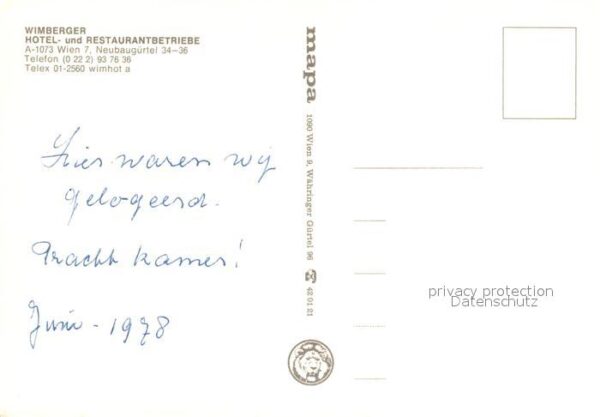 WIMBERGER
HOTEL- und RESTAURANTBETRIEBE
A-1073 Wien 7, Neubaugürtel 34-36
Telefon (0 22 2) 93 76 36
Telex 01-2560 wimhot a
Hier waren wij
gelogeerd.
Pracht kamer!
Juni - 1978
mapa
1090 Wien 9, Währinger Gürtel 96
42 01 21
privacy protection
Datenschutz